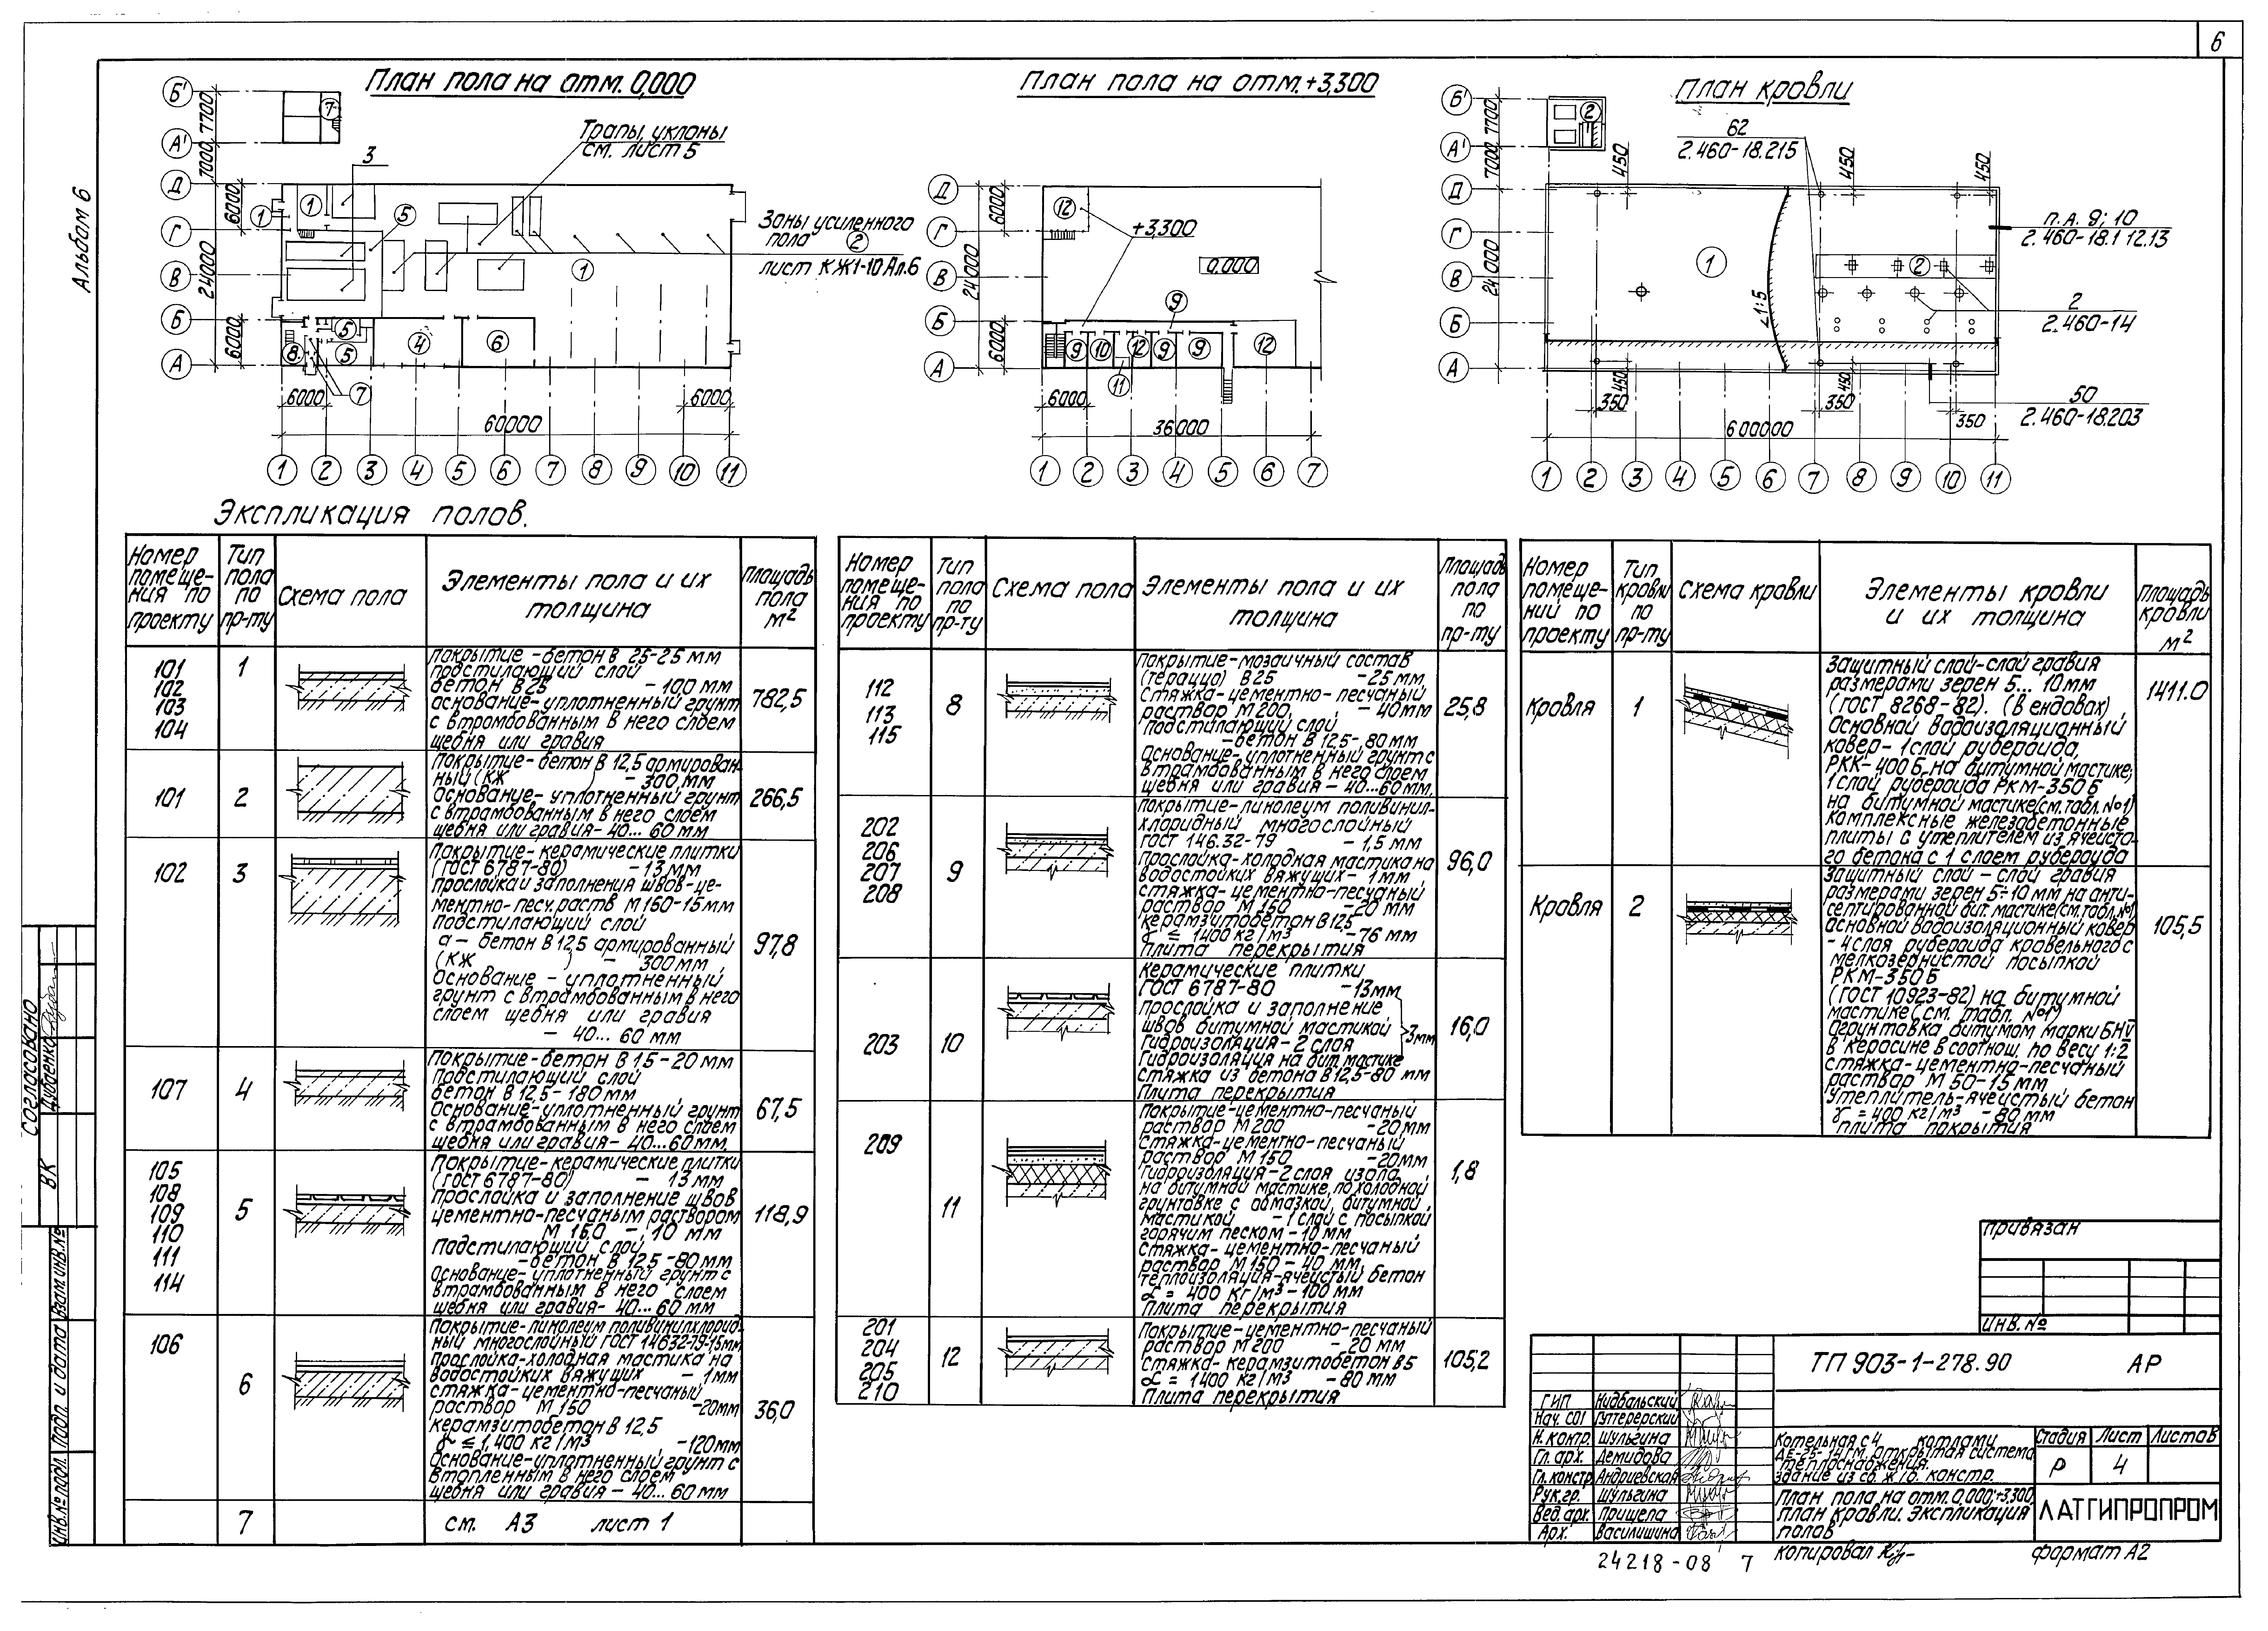 6
Альбом 6
План пола на отм. 0,000
Б'
А'
Д
Г
В
Б
А
7700
7000
6000
24000
6000
7
3
Трапы, уклоны
см. лист 5
1
1
5
Зоны усиленного
пола 2
лист КЖ1-10 Ал.6
1
8
5
5
4
6
7
6000
6000
60000
1 2 3 4 5 6 7 8 9 10 11
План пола на отм. +3,300
Д
Г
В
Б
А
6000
24000
6000
12
+3,300
0.000
9
9 10 12 9 9 12
11
6000
36000
1 2 3 4 5 6 7
План кровли
Б'
А'
Д
Г
В
Б
А
7700
7000
24000
2
62
2.460-18.215
450
450
450
п.А. 9; 10
2.460-18.1 12.13
1
2
∠1:5
2
2.460-14
450
450
350
350
350
50
2.460-18.203
600000
1 2 3 4 5 6 7 8 9 10 11
Экспликация полов.
Номер помеще-ния по проекту
Тип пола по пр-ту
Схема пола
Элементы пола и их толщина
Площадь пола м2
101
102
103
104
1
Покрытие-бетон В 25-25 мм
подстилающий слой
бетон В25 -100 мм
основание-уплотненный грунт
с втрамбованным в него слоем
щебня или гравия
782,5
101
2
Покрытие-бетон В 12,5 армирован-
ный (КЖ ) - 300 мм
Основание-уплотненный грунт
с втрамбованным в него слоем
щебня или гравия-40...60 мм
266,5
102
3
Покрытие-керамические плитки
(ГОСТ 6787-80) -13 мм
прослойка и заполнения швов-це-
ментно-песч. раств М 160-15 мм
Подстилающий слой
а - бетон В 12,5 армированный
(КЖ ) - 300 мм,
Основание - уплотненный
грунт с втрамбованным в него
слоем щебня или гравия
- 40... 60 мм
97,8
107
4
Покрытие-бетон В 15-20 мм
Подстилающий слой
бетон В 12,5-180 мм
Основание-уплотненный грунт
с втрамбованным в него слоем
щебня или гравия-40...60 мм.
67,5
105
108
109
110
111
114
5
Покрытие-керамические плитки
(ГОСТ 6787-80) - 13 мм
Прослойка и заполнение швов
цементно-песчаным раствором
М 150 - 10 мм
Подстилающий слой
-бетон В 12,5-80 мм
Основание-уплотненный грунт с
втрамбованным в него слоем
щебня или гравия-40...60 мм
118,9
106
6
Покрытие-линолеум поливинилхлорид-
ный многослойный ГОСТ 14632-79-1,5мм
Прослойка-холодная мастика на
водостойких вяжущих - 1мм
стяжка-цементно-песчаный
раствор М 150 -20мм
керамзитобетон В 12,5
γ ≤ 1,400 кг/м3 -120мм
Основание-уплотненный грунт с
втопленным в него слоем
щебня или гравия - 40...60 мм
36,0
7
см. А3 лист 1
Номер помеще-ния по проекту
Тип пола по пр-ту
Схема пола
Элементы пола и их толщина
Площадь пола по пр-ту
112
113
115
8
Покрытие-мозаичный состав
(тераццо) В25 -25 мм,
Стяжка-цементно-песчаный
раствор М 200, - 40мм
Подстилающий слой
-бетон В 12,5-80 мм
Основание-уплотненный грунт с
втрамбованным в него слоем
щебня или гравия - 40...60 мм.
25,8
202
206
207
208
9
покрытие-линолеум поливинил-
хлоридный многослойный
ГОСТ 146.32-79 - 1,5 мм
прослойка-холодная мастика на
водостойких вяжущих- 1мм
стяжка-цементно-песчаный
раствор М 150 -20 мм
керамзитобетон В 12,5
γ ≤ 1400 кг/м3 -76 мм
Плита перекрытия
96,0
203
10
Керамические плитки
ГОСТ 6787-80 -13мм
прослойка и заполнение
швов битумной мастикой
Гидроизоляция-2 слоя
Гидроизоляция на бит. мастике
3мм
стяжка из бетона В 12,5-80 мм
Плита перекрытия
16,0
209
11
Покрытие-цементно-песчаный
раствор М 200 -20мм
Стяжка-цементно-песчаный
раствор М 150 -20мм
Гидроизоляция-2 слоя изола
на битумной мастике, по холодной
грунтовке с обмазкой, битумной,
мастикой -1 слой с посыпкой
горячим песком-10 мм
Стяжка-цементно-песчаный
раствор М 150-40 мм,
теплоизоляция-ячеистый бетон
α = 400 кг/м3-100 мм
Плита перекрытия
1,8
201
204
205
210
12
Покрытие-цементно-песчаный
раствор М 200 - 20 мм
стяжка-керамзитобетон В5
α = 1400 кг/м3 -80 мм
Плита перекрытия
105,2
Номер помеще-ний по проекту
Тип кровли по пр-ту
Схема кровли
Элементы кровли и их толщина
Площадь кровли м2
Кровля
1
Защитный слой-слой гравия
размерами зерен 5... 10мм
(ГОСТ 8268-82). (в ендовах)
Основной водоизоляционный
ковер-1слой рубероида,
РКК-400Б на битумной мастике,
1 слой рубероида РКМ-350Б
на битумной мастике(см.табл.№1)
Комплексные железобетонные
плиты с утеплителем из ячеисто-
го бетона с 1 слоем рубероида
1411.0
Кровля
2
Защитный слой-слой гравия
размерами зерен 5÷10 мм на анти-
септированной бит. мастике(см.табл.№1)
основной водоизоляционный ковер
-4слоя рубероида кровельного с
мелкозернистой посыпкой
РКМ-350Б
(ГОСТ 10923-82) на битумной
мастике(см. табл. №1)
Огрунтовка битумом марки БНV
в керосине в соотнош. по весу 1:2
стяжка-цементно-песчаный
раствор М 50-15 мм
Утеплитель-ячеистый бетон
γ = 400 кг/м3 -80 мм
плита покрытия
105,5
Согласовано
ВК
Дубденко
Инв.№ подл.
Подп. и дата
Взам.инв.№
Привязан
Инв. №
ТП 903-1-278.90 АР
ГИП Нидбальский
Нач. СО1 Гуттерерский
Н. контр. Шульгина
Гл. арх. Демидова
Гл. констр Андриевская
Рук.гр. Шульгина
Вед. арх. Прищепа
Арх. Василишина
Котельная с 4 котлами
ДЕ-25-14 гм. открытая система
теплоснабжения.
Здание из сб. ж/б. констр.
Стадия Лист Листов
Р 4
План пола на отм. 0,000;+3,300
План кровли. Экспликация
полов
ЛАТГИПРОПРОМ
24218-08 7
копировал
формат А2